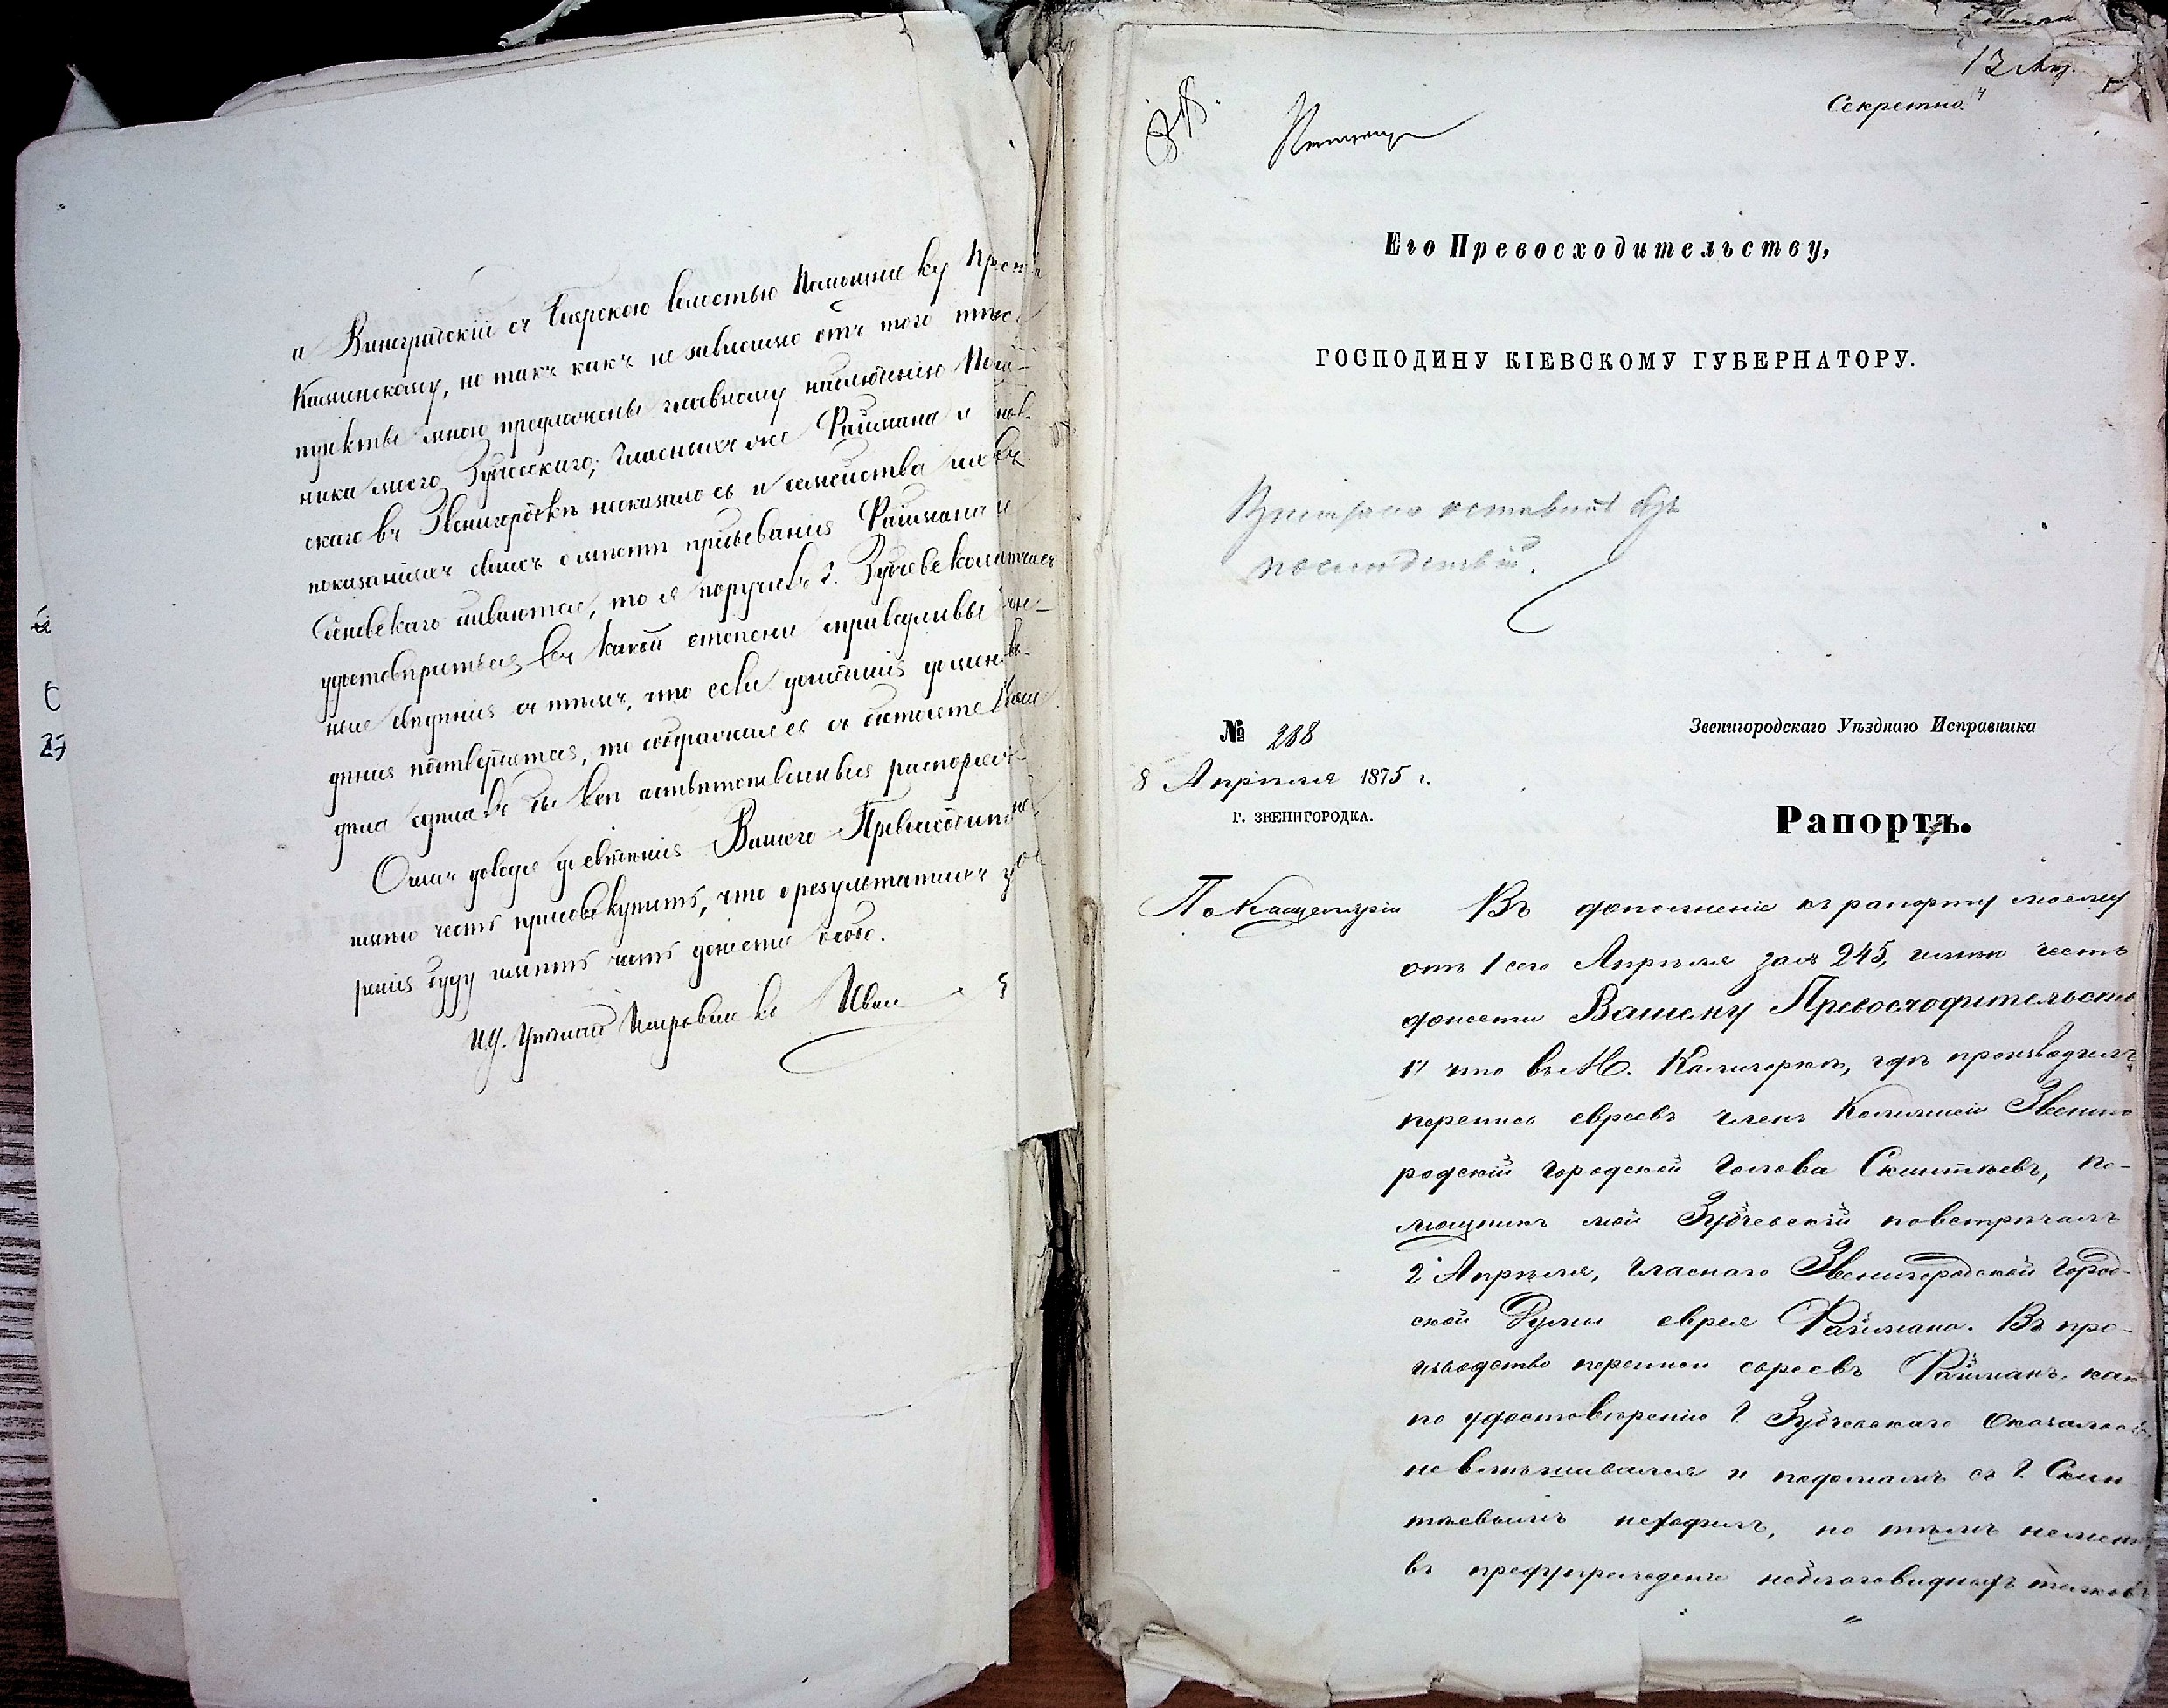 а Виноградскій съ Боярскою волостью Помощнику Приста
Каменскому, но такъ какъ не зависимо отъ того
пункты мною предложены главному наблюденію Помо-
ника моего Зубчевскаго; Гласныхъ же Раймана и
скаго въ Звенигородкѣ неоказалось и семейства ихъ въ
показаніяхъ своихъ о мѣстѣ пребыванія Раймана и
сбиваются, то я поручилъ Г. Зубчевскому
удостовѣриться въ какой степени справедливы
ныя свѣденія съ тѣмъ, что если
подтвердятся, то
дѣла сдѣлалъ бы всѣ соотвѣтственныя распоряже-
О чемъ доводя до свѣденія Вашего Превосходитель
имѣю честь присовокупить, что о результатахъ
ренія буду имѣть честь донести особо.
И.Д. Уѣзднаго Исправника
Секретно.
Его Превосходительству,
ГОСПОДИНУ КІЕВСКОМУ ГУБЕРНАТОРУ.
оставить безъ
послѣдствій.
№ 288
8 Апрѣля 1875 г.
Г. ЗВЕНИГОРОДКА.
Звенигородскаго Уѣзднаго Исправника
Рапортъ.
По Канцеляріи
Въ дополненіе къ рапорту моему
отъ 1 сего Апрѣля за № 245, имѣю честь
донести Вашему Превосходительств
1) что въ М. Калигоркѣ, гдѣ производилъ
перепись евреевъ членъ Коммисіи Звениго
родскій Городской Голова, по-
мощникъ мой Зубчевскій повстрѣчалъ
2 Апрѣля, Гласнаго Звенигородской Город-
ской Думы еврея Раймана. Въ про-
изводство переписи евреевъ Райманъ, какъ
по удостовѣренію Г. Зубчевскаго оказалось,
не вмѣшивался и по домамъ съ Г.
неходилъ, но тѣмъ немен
въ предупрежденіе неблаговидныхъ толковъ